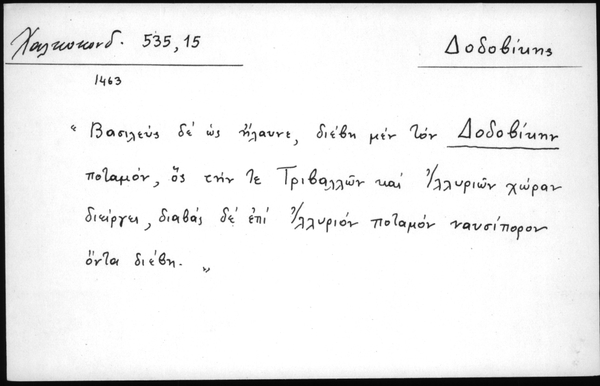 Χαλκοκονδ. 535,15
Δοδοβίκης
1463
"Βασιλεύς δέ ὡς ἤλαυνε, διέβη μέν τόν Δοδοβίκην
ποταμόν, ὅς τήν τε Τριβαλλῶν καί Ἰλλυριῶν χώραν
διείργει, διαβάς δέ ἐπί Ἰλλυριόν ποταμόν ναυσίπορον
ὄντα διέβη. "